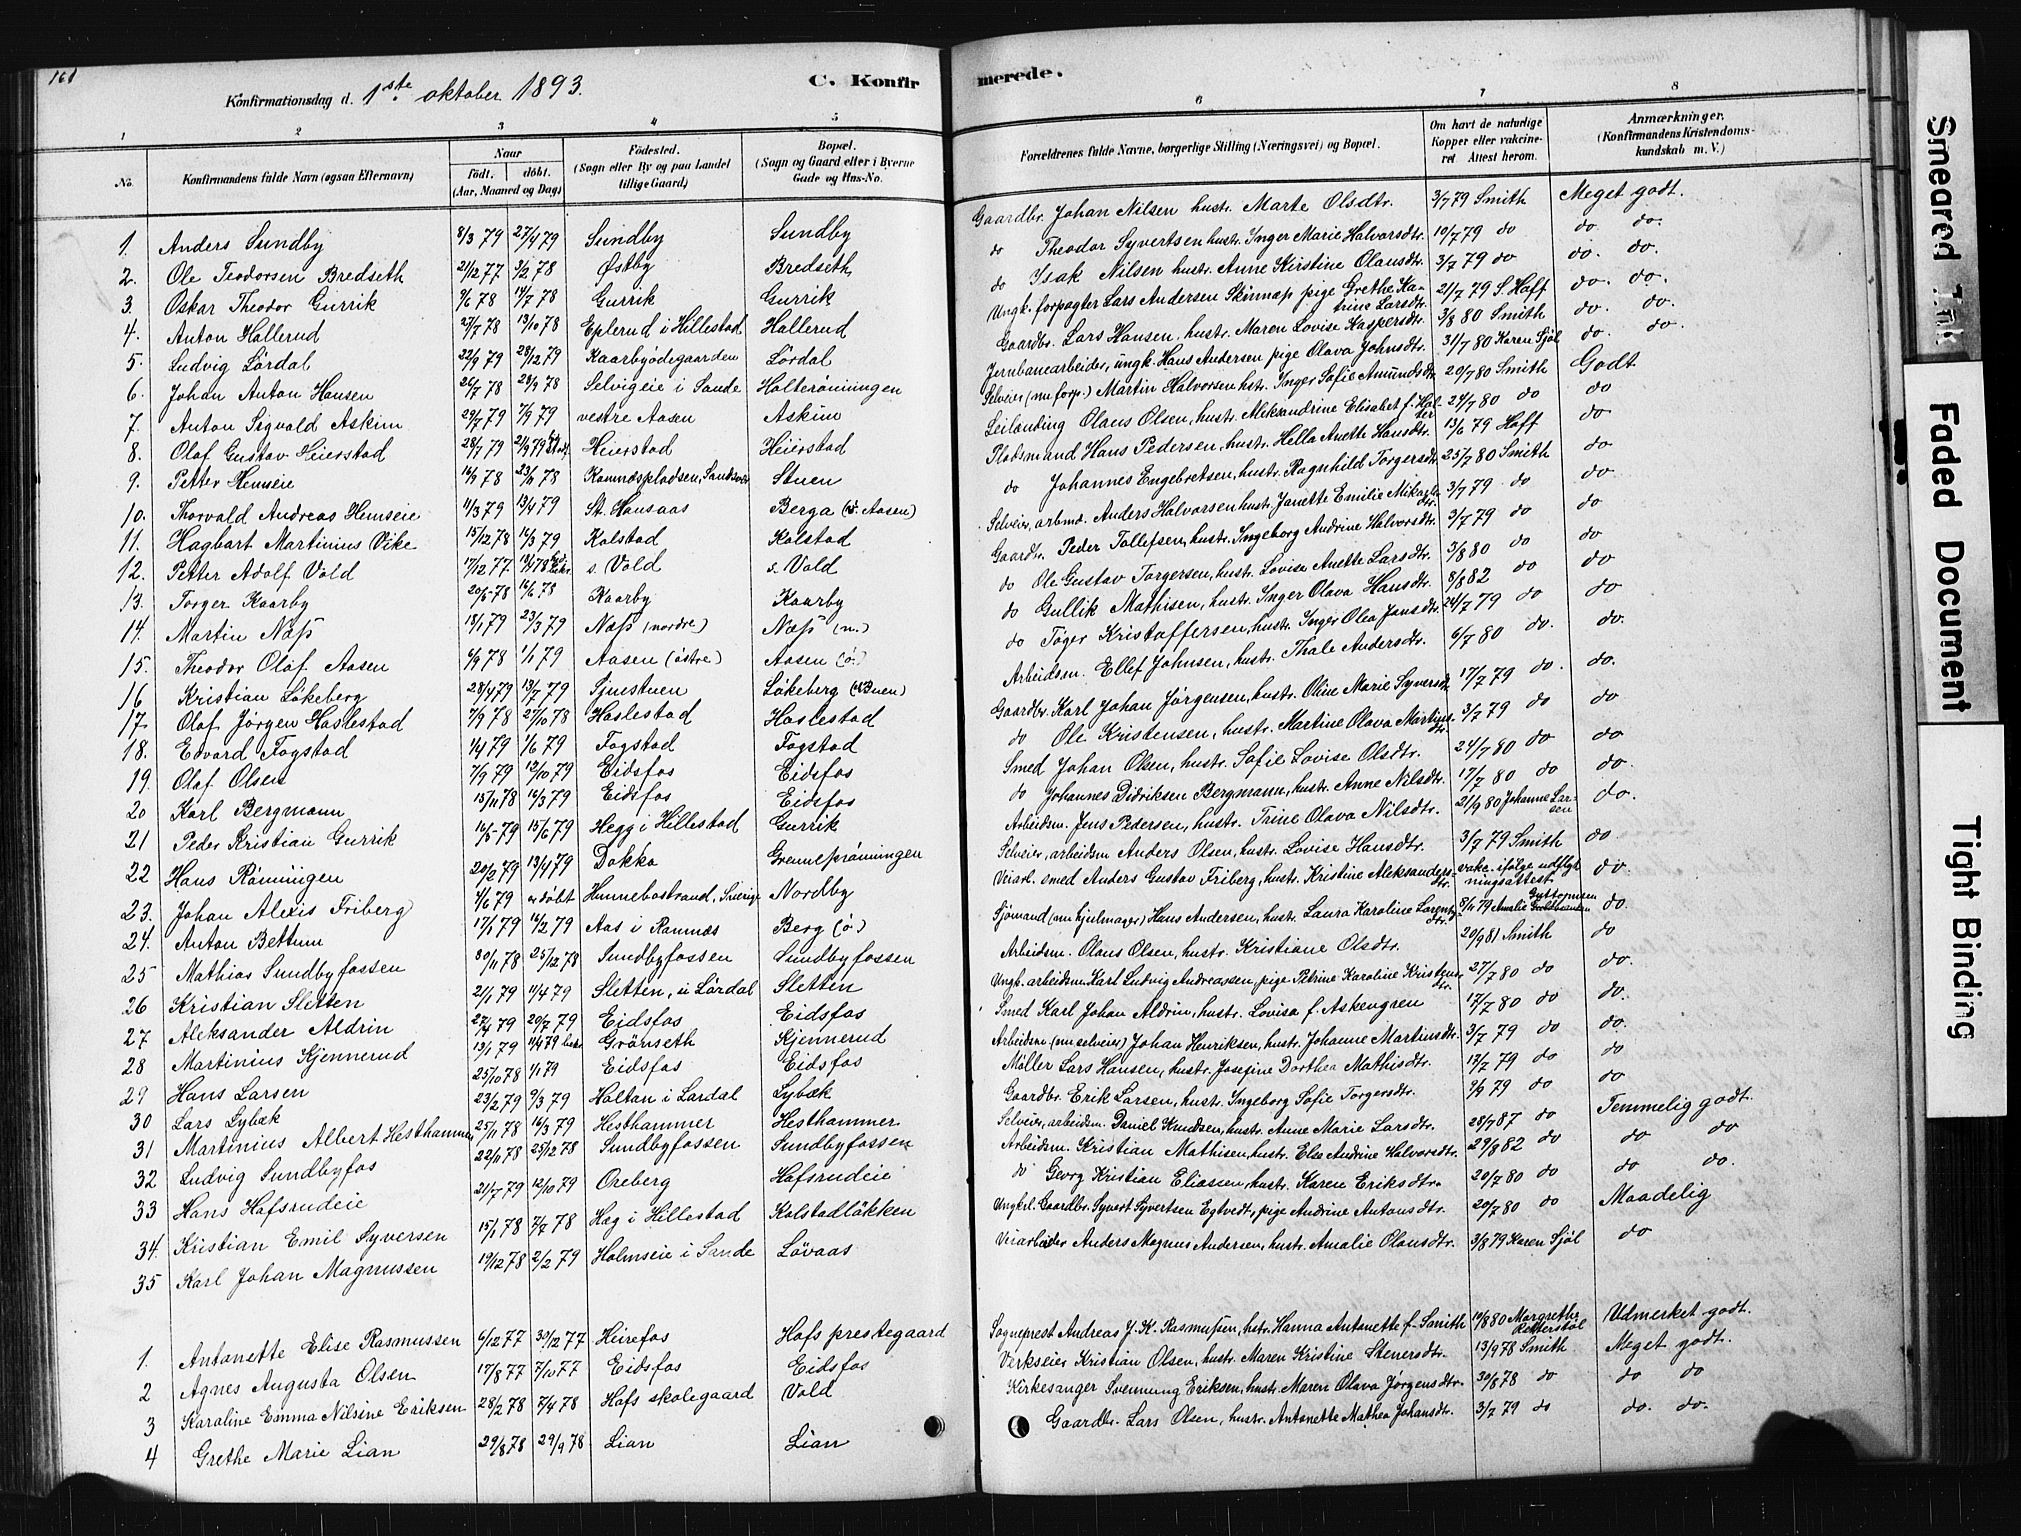 161
Konfirmationsdag d. 1ste oktober 1893.
C. Konfirmerede.
1 2 3 4 5 6 7 8
No. Konfirmandens fulde Navn (ogsaa Efternavn) Naar födt. döbt. (Aar, Maaned og Dag) Födested. (Sogn eller By og paa Landet tillige Gaard) Bopæl. (Sogn og Gaard eller i Byerne Gade og Hus-No. Forældrenes fulde Navne, borgerlige Stilling (Næringsvei) og Bopæl. Om havt de naturlige Kopper eller vakcineret Attest herom. Anmærkninger. (Konfirmandens Kristendomskundskab m. V.)
1. Anders Sundby 8/3 79 27/4 79 Sundby Sundby Gaardbr. Johan Nilsen hustr. Marte Olsdtr. 3/7 79 Smith Meget godt.
2. Ole Teodorsen Bredseth 21/12 77 3/2 78 Østby Bredseth do Theodor Syvertsen hustr. Inger Marie Halvorsdtr. 10/7 79 do do. do.
3. Oskar Theodor Gurrik 9/6 78 14/7 78 Gurrik Gurrik do Isak Nilsen hustr. Anne Kirstine Olausdtr. 3/7 79 do do. do.
4. Anton Hallerud 27/7 78 13/10 78 Eplerud i Hillestad Hallerud Ungk. forpagter Lars Andersen Skinnap pige Grethe Katrine Larsdtr. 21/7 79 S. Hoff do. do.
5. Ludvig Lördal 22/9 79 28/12 79 Kaarbyödegaarden Lördal Gaardbr. Lars Hansen, hustr. Maren Lovise Kaspersdtr. 3/8 80 Smith do. do.
6. Johan Anton Hansen 26/7 78 29/9 78 Selvigeie i Sande Holterönningen Jernbanearbeider, ungk. Hans Andersen pige Olava Johnsdtr. 31/7 80 Karen Sjöl do do.
7. Anton Sigvald Askim 29/7 79 7/9 79 vestre Aasen Askim Selveier (nu forp.) Martin Halvorsen hstr. Inger Sofie Amundsdtr. 20/7 80 Smith Godt
8. Olaf Gustav Heierstad 28/7 79 21/9 79 Heierstad Heierstad Leilænding Olaus Olsen, hustr. Aleksandrine Elisabet f. Holter 24/7 80 do do
9. Petter Hemseie 16/9 78 23/11 78 Komnæspladsen, Sandsvær Stuen Pladsmand Hans Pedersen, hustr. Hella Anette Hansdtr. 13/6 79 Hoff do
10. Thorvald Andreas Hemseie 11/3 79 13/4 79 St. Hansaas Berga (v. Aasen) do Johannes Engebretsen, hustr. Ragnhild Torgersdtr. 25/7 80 Smith do
11. Hagbart Martinius Vike 15/12 78 16/3 79 Kolstad Kolstad Selveier, arbmd. Anders Halvorsen hustr. Janette Emilie Mikaelsdtr. 3/7 79 do do.
12. Petter Adolf Vold 17/12 77 s. Vold s. Vold Gaardbr. Peder Tollefsen, hustr. Ingeborg Andrine Halvorsdtr. 3/7 79 do do
13. Torger Kaarby 20/5 78 16/6 78 Kaarby Kaarby do Ole Gustav Torgersen, hustr. Lovise Anette Larsdtr. 3/8 80 do do
14. Martin Næss 18/1 79 23/3 79 Næss (nordre) Næss (n.) do Gullik Mathisen, hustr. Inger Olava Hansdtr. 8/8 82 do do
15. Theodor Olaf Aasen 6/9 78 1/1 79 Aasen (östre) Aasen (ö.) do Töger Kristoffersen, hustr. Inger Olea Jansdtr. 24/7 79 do do
16 Kristian Lökeberg 28/4 79 13/7 79 Tjuestuen Lökeberg Arbeidsm. Ellef Johnsen, hustr. Thale Andersdtr. 6/7 80 do. do.
17. Olaf Jörgen Haslestad 7/9 78 27/10 78 Haslestad Haslestad Gaardbr. Karl Johan Jörgensen, hustr. Oline Marie Syversdtr. 17/7 79 do. do.
18. Edvard Fogstad 1/4 79 1/6 79 Fogstad Fogstad do Ole Kristensen, hustr. Martine Olava Martinsdtr. 3/7 79 do do
19. Olaf Olsen 7/9 79 12/10 79 Eidsfos Eidsfos Smed Johan Olsen, hustr. Sofie Lovise Olsdtr. 24/7 80 do do
20 Karl Bergmann 15/11 78 16/3 79 Eidsfos Eidsfos do Johannes Didriksen Bergmann, hustr. Anne Nilsdtr. 17/7 80 do do.
21 Peder Kristian Gurrik 16/5 79 15/6 79 Hegg i Hillestad Gurrik Arbeidsm. Jens Pedersen, hustr. Trine Olava Nilsdtr. 21/9 80 Johanne Larsen do.
22 Hans Rönningen 20/2 79 13/4 79 Dokka Grennesrönningen Selveier, arbeidsm Anders Olsen, hustr. Lovise Hansdtr. 3/7 79 Smith do
23. Johan Alexis Friberg 4/6 79 er döbt Hunnebostrand, Sverige Nordby Veiarb. smed Anders Gustav Friberg, hustr. Kristine Aleksandersdtr. vakc. ifölge udflytningsattest do.
24. Anton Bettum 17/1 79 16/2 79 Aas i Ramnæs Berg (ö.) Sjömand (nu hjulmager) Hans Andersen, hustr. Laura Karoline Larentzdtr. 8/11 79 Amalie Guttormsen do.
25 Mathias Sundbyfossen 30/11 78 25/12 78 Sundbyfossen Sundbyfossen Arbeidsm. Olaus Olsen, hustr. Kristiane Olsdtr. 20/9 81 Smith do
26 Kristian Sletten 21/1 79 11/4 79 Sletten, u Lördal Sletten Ungk. arbeidsm. Karl Ludvig Andreassen, pige Petrine Karoline Kristensdtr. 27/7 80 do do.
27 Aleksander Aldrin 27/4 79 20/7 79 Eidsfos Eidsfos Smed Karl Johan Aldrin, hustr. Lovisa f. Askengren 17/7 80 do do.
28 Martinius Kjennerud 13/1 79 11/4 79 Grönseth Kjennerud Arbeidsm (nu selveier) Johan Henriksen, hustr. Johanne Martinsdtr. 3/7 79 do do
29 Hans Larsen 25/10 78 1/1 79 Eidsfos Eidsfos Möller Lars Hansen, hustr. Josefine Dorthea Mathisdtr. 13/7 79 do do
30 Lars Lybæk 23/2 79 9/3 79 Holtan i Lardal Lybæk Gaardbr. Erik Larsen, hustr. Ingeborg Sofie Torgersdtr. 9/9 79 do do
31 Martinius Albert Hesthammer 25/11 78 16/3 79 Hesthammer Hesthammer Selveier, arbeidsm. Daniel Knudsen, hustr. Anne Marie Larsdtr. 28/7 87 do Temmelig godt.
32 Ludvig Sundbyfos 22/11 78 25/12 78 Sundbyfossen Sundbyfossen Arbeidsm. Kristian Mathisen, hustr. Else Andrine Halvorsdtr. 29/8 82 do do do
33 Hans Hafsrudeie 21/7 79 12/10 79 Oreberg Hafsrudeie do Georg Kristian Eliassen, hustr. Karen Eriksdtr. 20/7 80 do do do.
34. Kristian Emil Syversen 15/1 78 7/7 78 Hæg i Hillestad Kolstadlökken Ungkl. Gaardbr. Syvert Syvertsen Egtvedt, pige Andrine Antonsdtr. 20/7 80 do Maadelig
35 Karl Johan Magnussen 19/12 78 2/2 79 Holmseie i Sande Lövaas Veiarbeider Anders Magnus Andersen, hustr. Amalie Olausdtr. 3/8 79 Karen Sjöl do
1. Antonette Elise Rasmussen 6/12 77 30/12 77 Heirefos Hofs prestegaard Sogneprest Andreas J. K. Rasmussen, hstr. Hanna Antonette f. Smith 19/8 80 Margrethe Udmerket godt.
2 Agnes Augusta Olsen 17/8 77 7/10 77 Eidsfos Eidsfos Verkseier Kristian Olsen, hustr. Maren Kristine Stenersdtr. 13/9 78 Smith Meget godt.
3 Karoline Emma Nilsine Eriksen 28/2 78 7/4 78 Hofs skolegaard Vold Kirkesanger Svennung Eriksen, hustr. Maren Olava Jørgensdtr. 30/8 78 do do do
4 Grethe Marie Lian 29/8 78 29/9 78 Lian Lian Gaardbr. Lars Olsen, hustr. Antonette Mathea Johansdtr. 3/7 79 do do. do.
Smeared Ink
Faded Document
Tight Binding